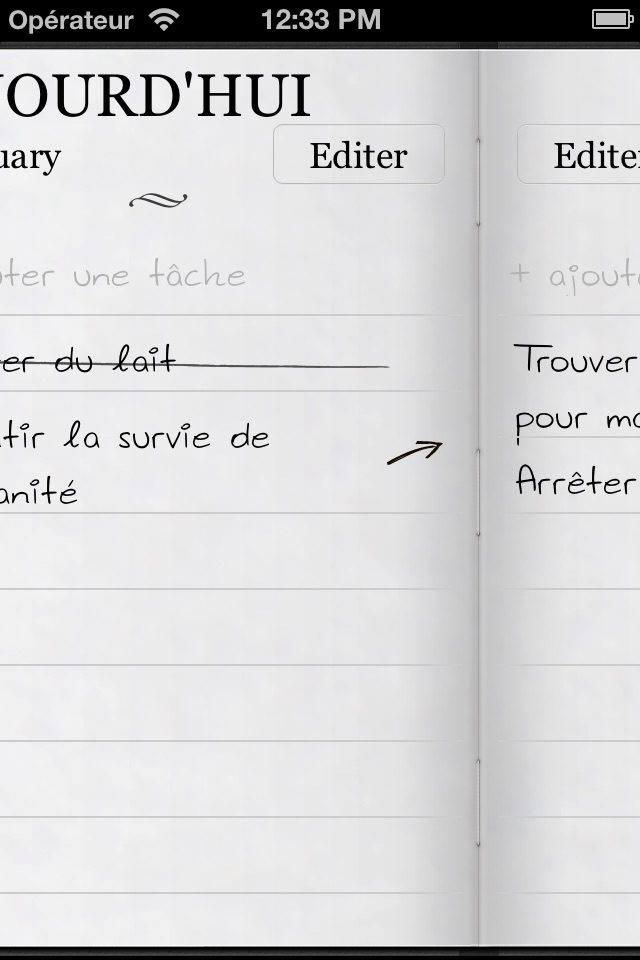 Opérateur 12:33 PM
OURD'HUI
uary
Editer
uter une tâche
er du lait
tir la survie de
anité
Edite
+ ajout
Trouver
pour mo
Arrêter